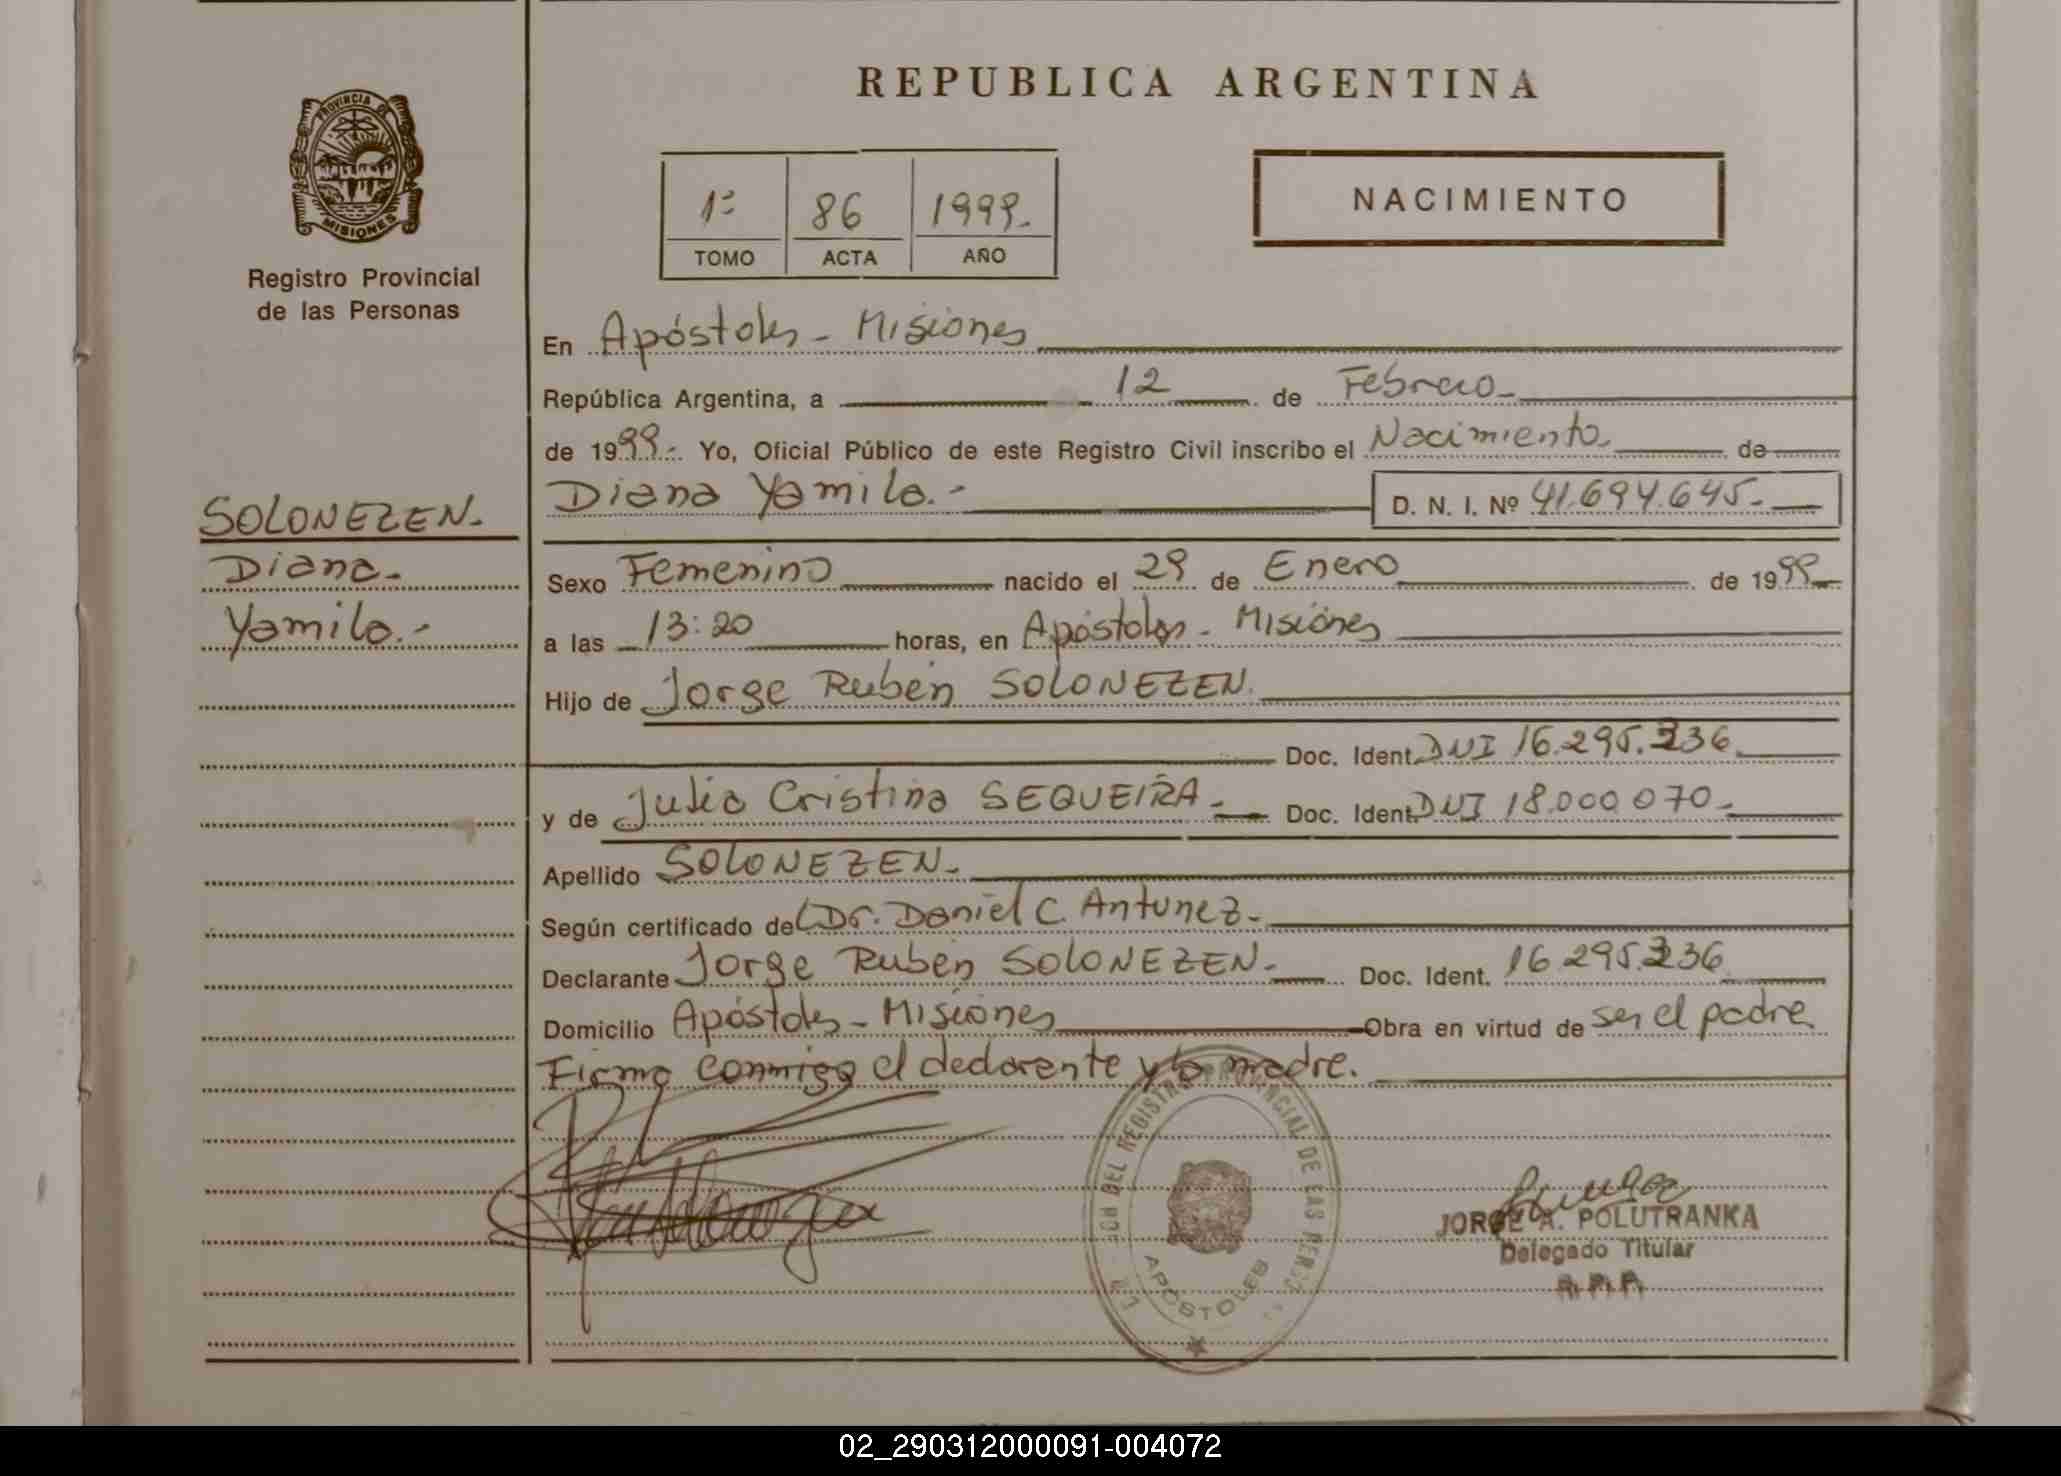 REPUBLICA ARGENTINA
PROVINCIA DE
MISIONES
Registro Provincial
de las Personas
1º 86 1999.-
TOMO ACTA AÑO
NACIMIENTO
En Apóstoles - Misiones
República Argentina, a 12 de Febrero.-
de 1999.- Yo, Oficial Público de este Registro Civil inscribo el Nacimiento. de
Diana Yamila.- D. N. I. Nº 41.694.645.-
SOLONEZEN.-
Diana.-
Yamila.-
Sexo Femenino nacido el 29 de Enero de 1999
a las 13:20 horas, en Apóstoles - Misiones
Hijo de Jorge Rubén SOLONEZEN.
Doc. Ident. DNI 16.295.236.
y de Julia Cristina SEQUEIRA.- Doc. Ident. DNI 18.000.070.-
Apellido SOLONEZEN.-
Según certificado del Dr. Daniel C. Antunez.-
Declarante Jorge Rubén SOLONEZEN.- Doc. Ident. 16.295.236
Domicilio Apóstoles - Misiones Obra en virtud de ser el padre
Firma conmigo el declarante y la madre.
REGISTRO PROVINCIAL DE LAS PERSO
APOSTOLES
JORGE A. POLUTRANKA
Delegado Titular
R.P.P.
02_290312000091-004072